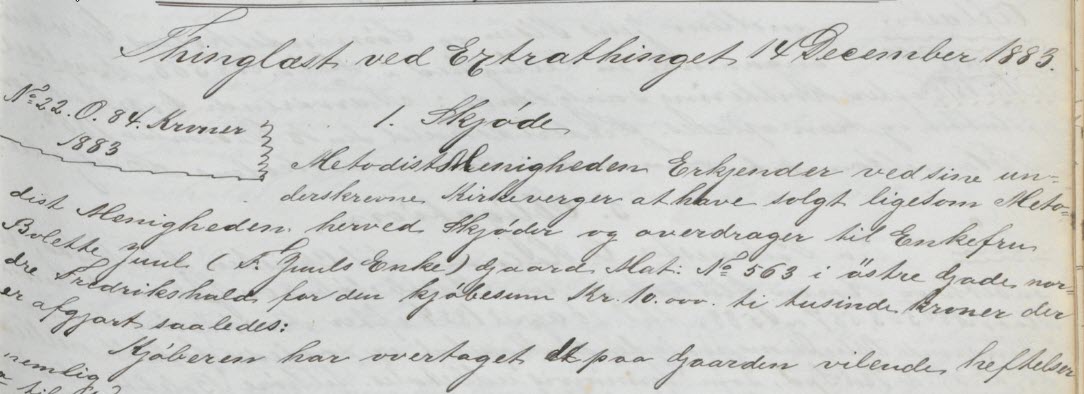 Thinglæst ved Extrathinget 14 December 1883.
No 22. O. 84. Kroner
1883
1. Skjøde
Metodist Menigheden Erkjender ved sine un-
derskrevne Kirkeverger at have solgt ligesom Meto-
dist Menigheden herved Skjøder og overdrager til Enkefru
Bolette Juul (T. Juuls Enke) Gaard Mat: No 563 i östre Gade nor-
dre Fredrikshald for den kjøbesum Kr. 10.000. ti tusinde kroner der
er afgjort saaledes:
Kjøberen har overtaget de paa Gaarden vilende heftelser
nemlig